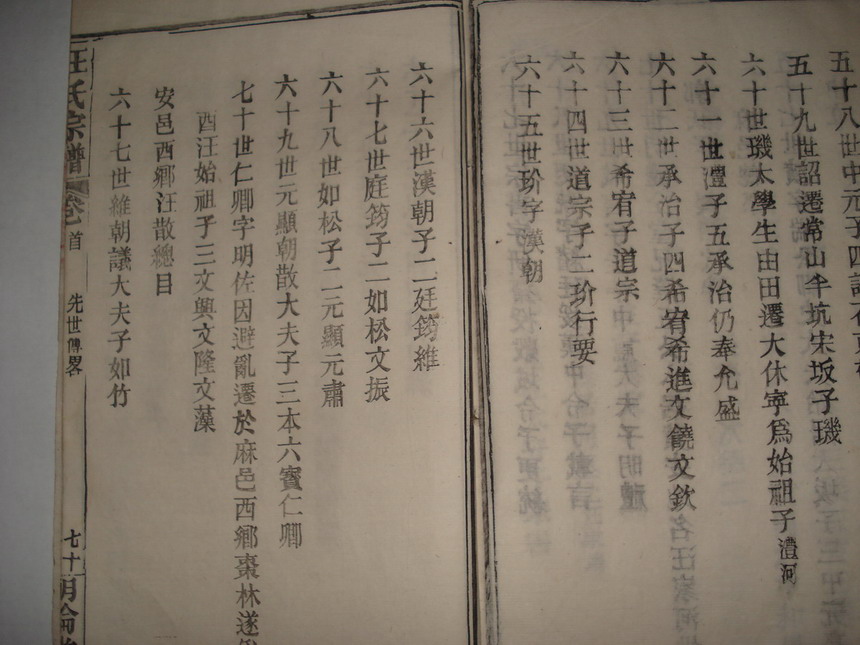 五十八世中元子四
五十九世詔遷常山半坑宋坂子璣
六十世璣太學生由田遷大休寧爲始祖子澧河
六十一世澧子五承治仍奉允盛
六十二世承治子四希宥希進文饒文欽
六十三世希宥子道宗
六十四世道宗子二玠行要
六十五世玠字漢朝
六十六世漢朝子二廷筠維
六十七世庭筠子二如松文振
六十八世如松子二元顯元肅
六十九世元顯朝散大夫子三本六賓仁卿
七十世仁卿字明佐因避亂遷於麻邑西鄉棗林遂
酉汪始祖子三文興文隆文藻
安邑西鄉汪散總目
六十七世維朝議大夫子如竹
汪氏宗譜 卷首 先世傳畧 七十